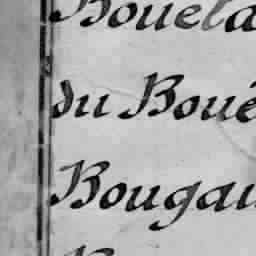 Boueta
du Boué
Bougau